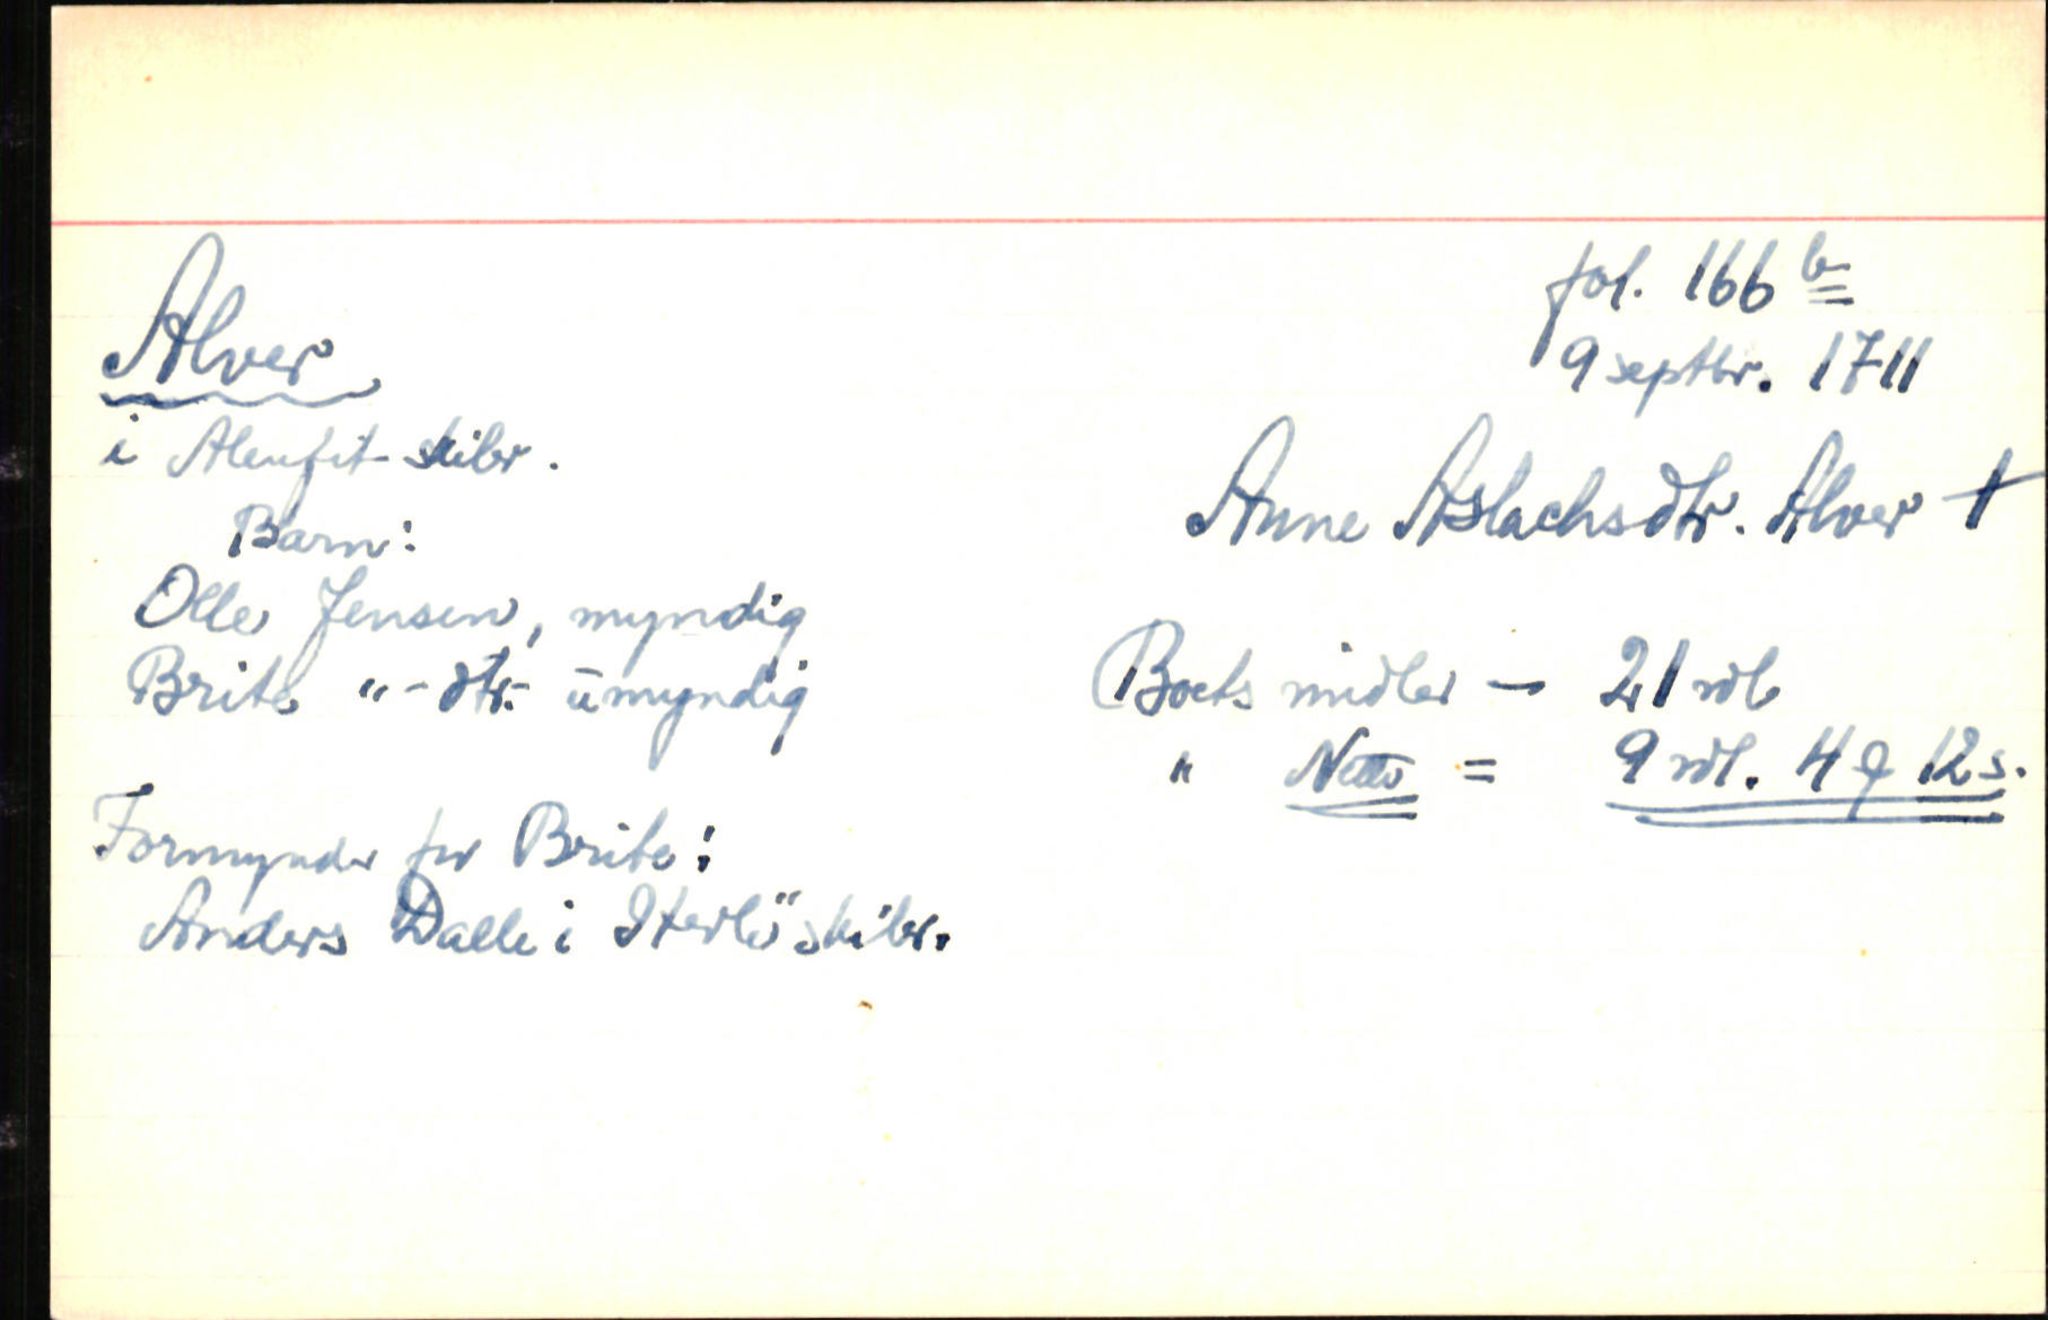 Alver
i Alenfit skibr.
Barn:
Olle Jensen, myndig
Brite " - dtr. - umyndig
Formynder for Brite:
Anders Dalle i Sterlö skibr.
fol. 166 b
9 septbr. 1711
Anne Aslachsdtr. Alver †
Boets midler — 21 rdl
" Netto = 9 rdl. 4 ₰ 12 s.